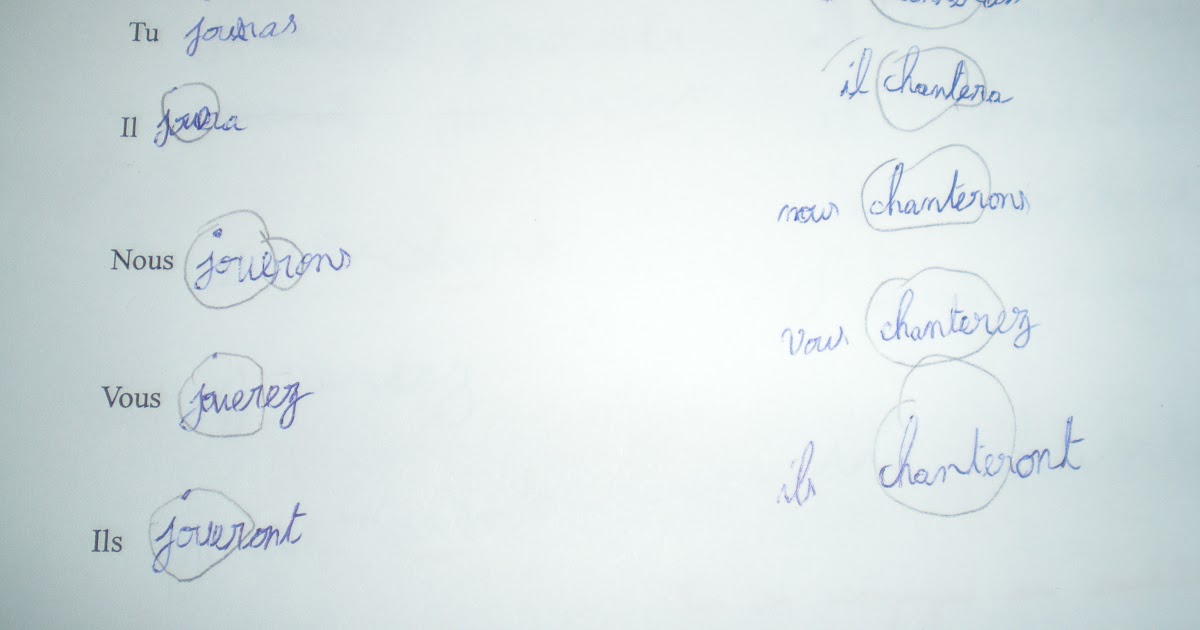 Tu joueras
Il jouera
Nous jouerons
Vous jouerez
Ils joueront
il chantera
nous chanterons
vous chanterez
ils chanteront